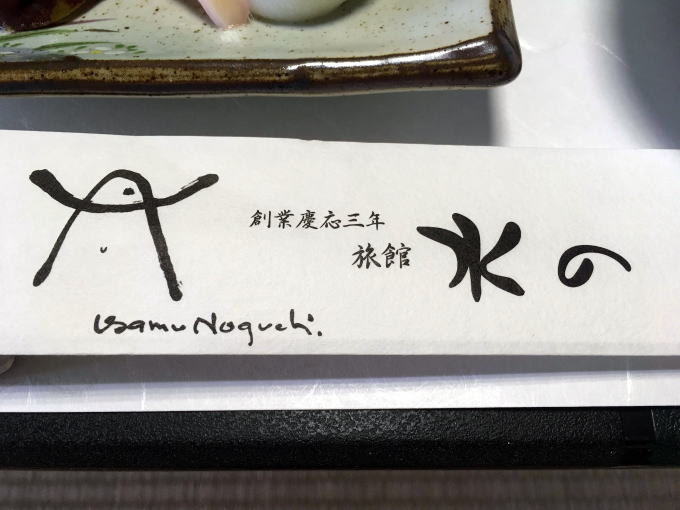 創業慶応三年
旅館 水の
Isamu Noguchi.